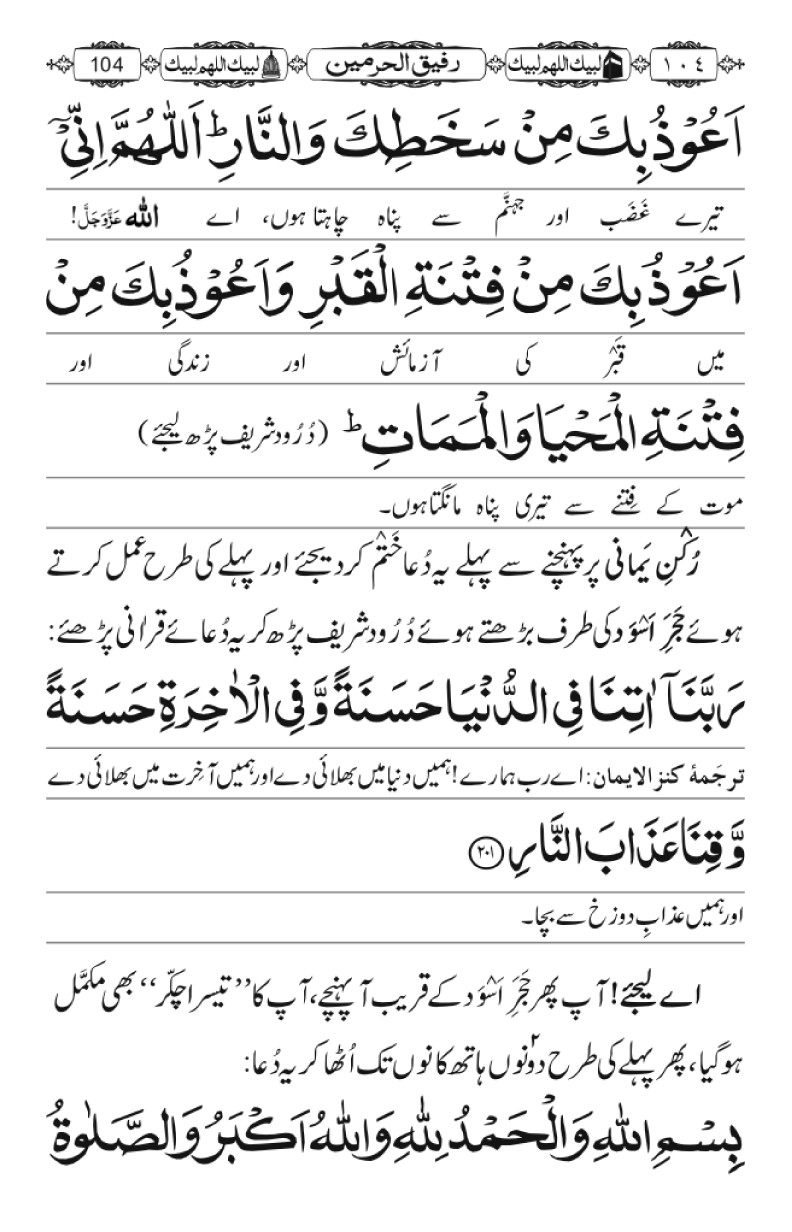 ۱۰٤ لبیك اللهم لبیك رفیق الحرمین لبیك اللهم لبیك 104
اَعُوْذُ بِكَ مِنْ سَخَطِكَ وَالنَّارِ ؕ اَللّٰهُمَّ اِنِّیْۤ
تیرے غَضَب اور جہنَّم سے پناہ چاہتا ہوں، اے اللہ عَزَّوَجَلَّ!
اَعُوْذُ بِكَ مِنْ فِتْنَةِ الْقَبْرِ وَاَعُوْذُ بِكَ مِنْ
میں قَبْر کی آزمائش اور زندگی اور
فِتْنَةِ الْمَحْیَا وَالْمَمَاتِ ؕ (دُرُود شریف پڑھ لیجئے)
موت کے فِتنے سے تیری پناہ مانگتا ہوں۔
رُکْنِ یَمانی پر پہنچنے سے پہلے یہ دُعا خَتْم کر دیجئے اور پہلے کی طرح عمل کرتے
ہوئے حَجَرِ اَسْوَد کی طرف بڑھتے ہوئے دُرُود شریف پڑھ کر یہ دُعائے قراٰنی پڑھئے:
رَبَّنَاۤ اٰتِنَا فِی الدُّنْیَا حَسَنَةً وَّ فِی الْاٰخِرَةِ حَسَنَةً
ترجَمۂ کنز الایمان: اے رب ہمارے! ہمیں دنیا میں بھلائی دے اور ہمیں آخِرت میں بھلائی دے
وَّ قِنَا عَذَابَ النَّارِ ﴿۲۰۱﴾
اور ہمیں عذابِ دوزخ سے بچا۔
اے لیجئے! آپ پھر حَجَرِ اَسْوَد کے قریب آ پہنچے، آپ کا ’’تیسرا چکّر‘‘ بھی مکمَّل
ہو گیا، پھر پہلے کی طرح دونوں ہاتھ کانوں تک اُٹھا کر یہ دُعا:
بِسْمِ اللّٰهِ وَالْحَمْدُ لِلّٰهِ وَاللّٰهُ اَکْبَرُ وَالصَّلٰوةُ